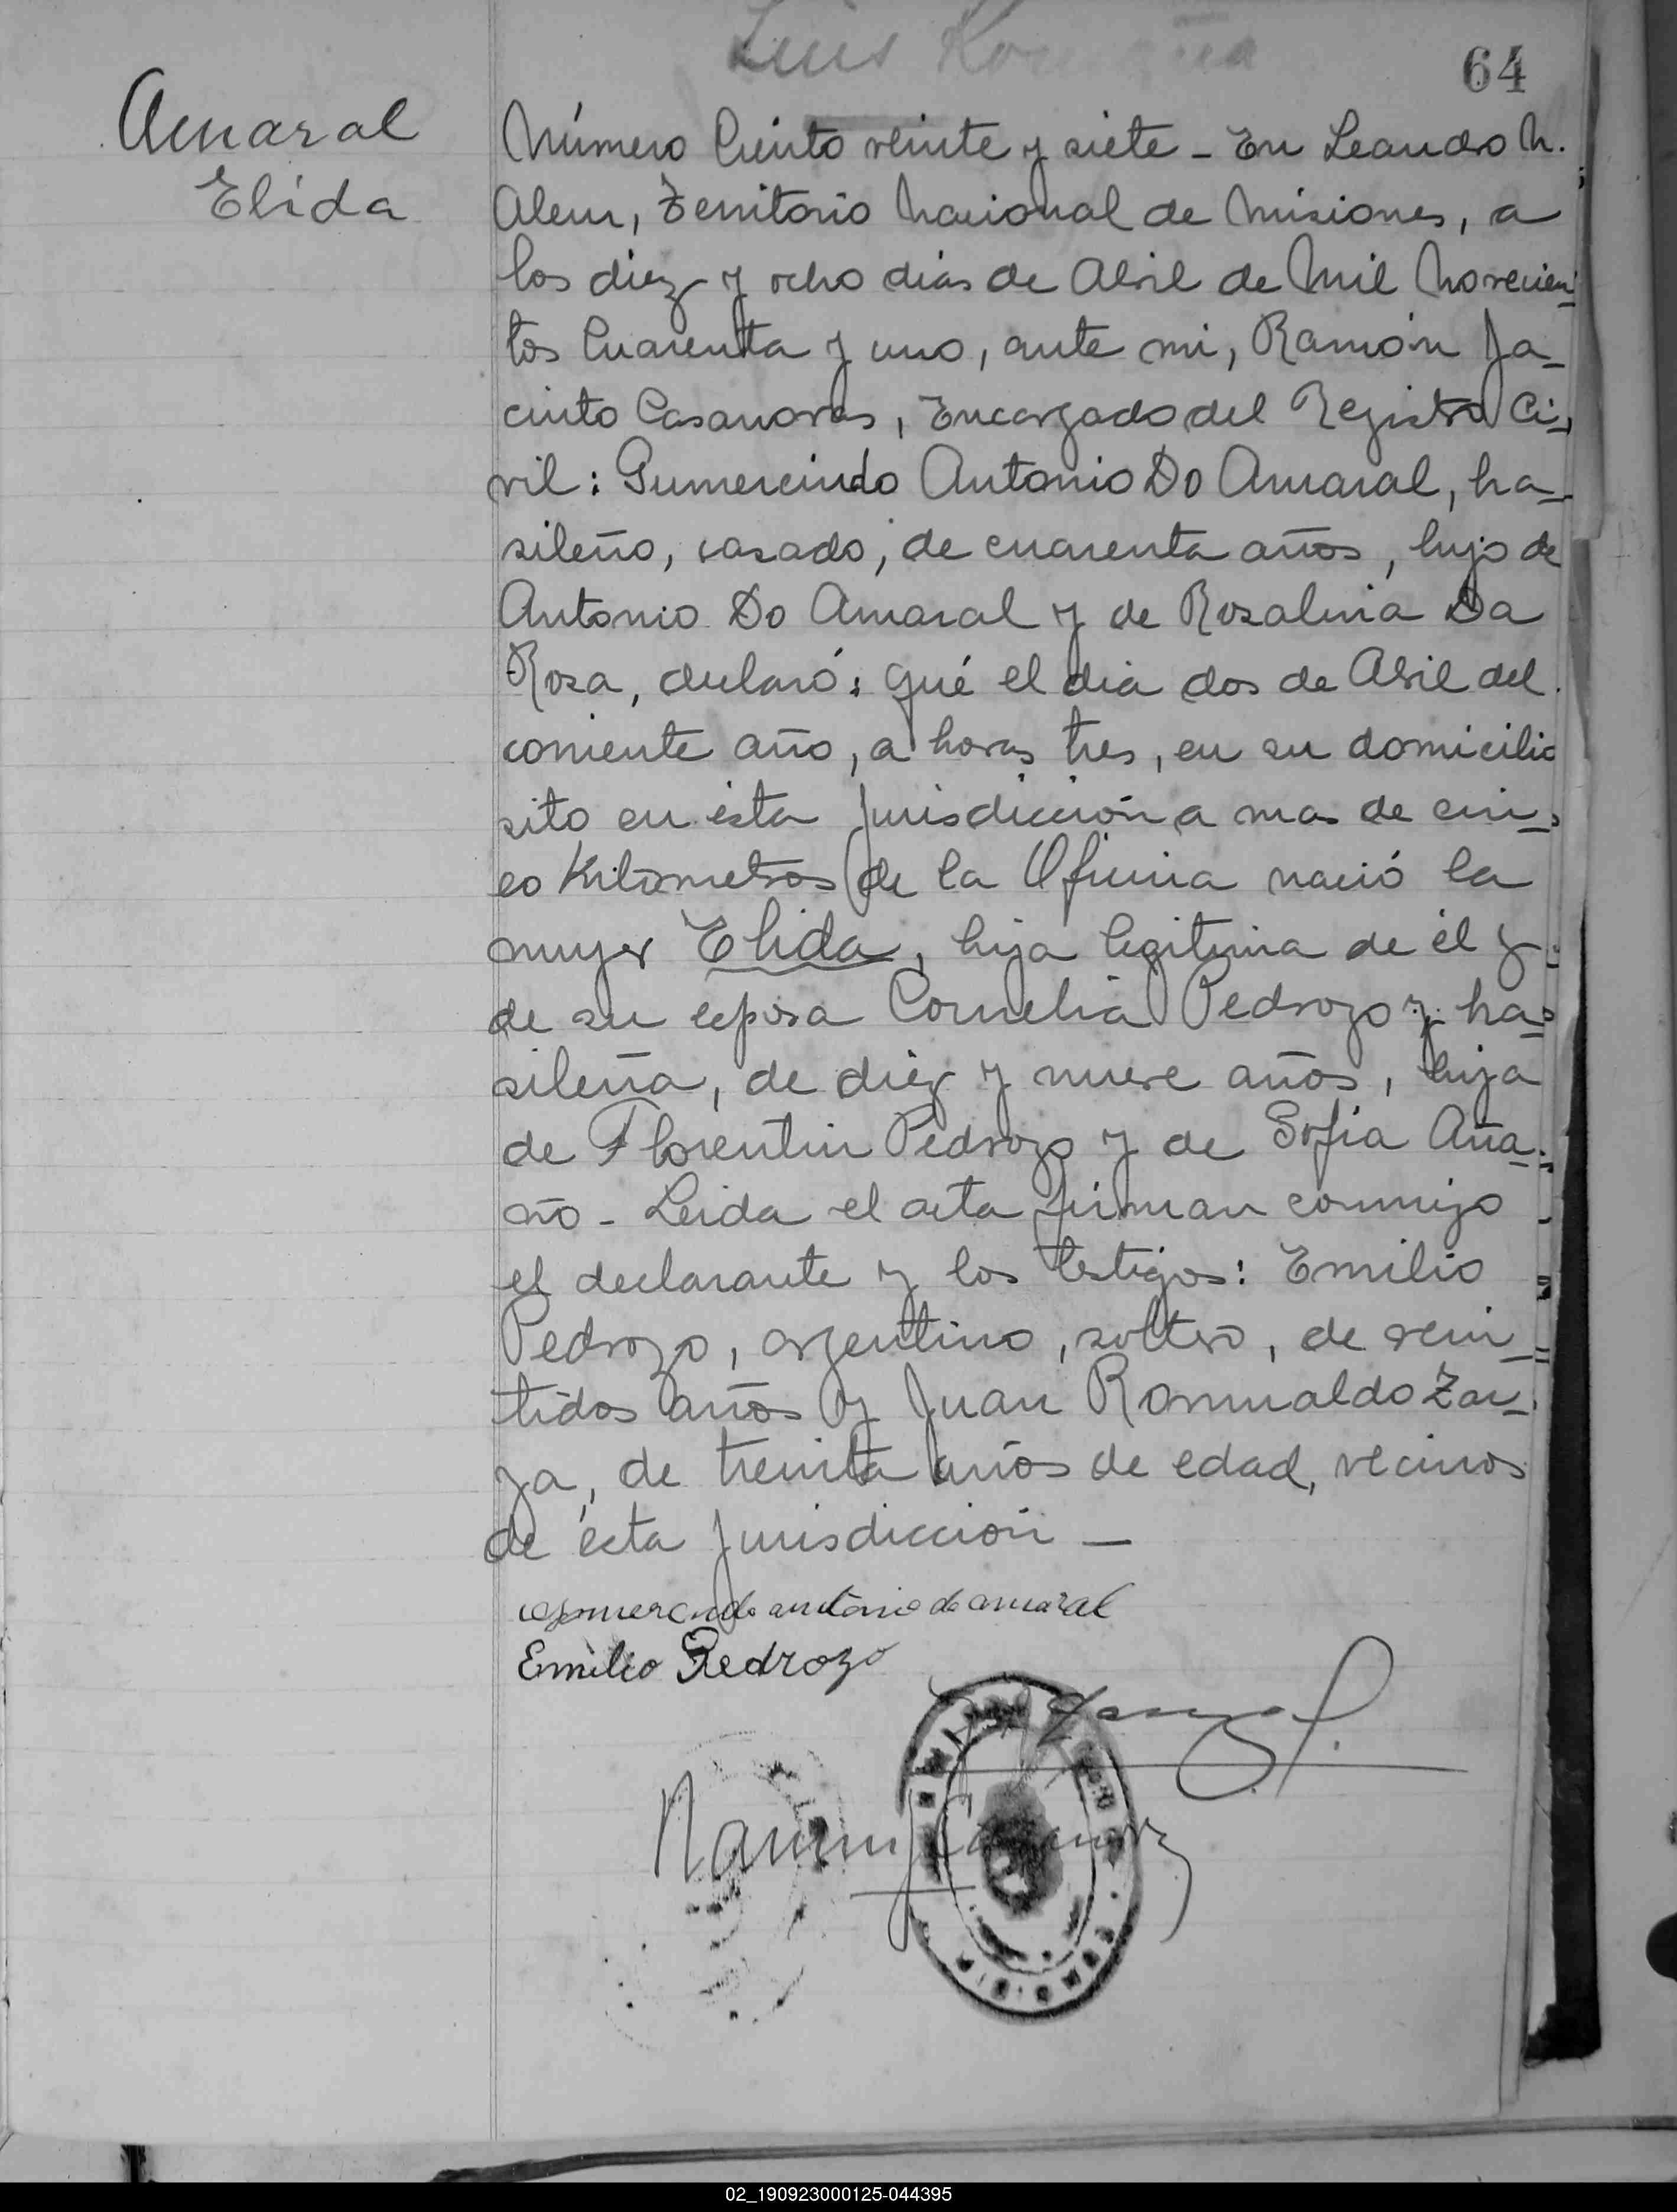 Luis
64
Amaral
Elida
Número Ciento veinte y siete - En Leandro N.
Alem, Territorio Nacional de Misiones, a
los diez y ocho dias de Abril de Mil Novecien-
tos Cuarenta y uno, ante mi, Ramón Ja-
cinto Casanovas, Encargado del Registro Ci-
vil: Gumercindo Antonio Do Amaral, bra-
sileño, casado, de cuarenta años, hijo de
Antonio Do Amaral y de Rosalina Da
Rosa, declaró: qué el dia dos de Abril del
corriente año, a horas tres, en su domicilio
sito en ésta Jurisdicción a mas de cin-
co Kilómetros de la Oficina nació la
mujer Elida, hija legitima de él y
de su esposa Cornelia Pedrozo y bra-
sileña, de diez y nueve años, hija
de Florentin Pedrozo y de Sofia Aña-
ño - Leida el acta firman conmigo
el declarante y los testigos: Emilio
Pedrozo, argentino, soltero, de vein-
tidos años y Juan Romualdo Zar-
za, de treinta años de edad, vecinos
de ésta Jurisdicción -
antonio do amaral
Emilio Pedrozo
02_190923000125-044395